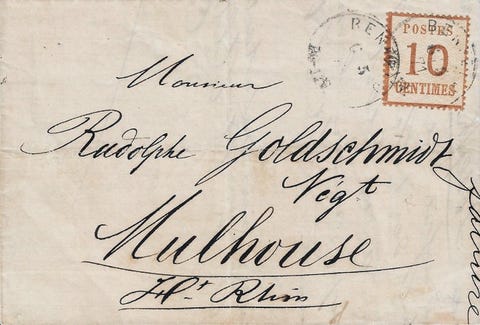 POSTES
10
CENTIMES
Monsieur
Rudolphe Goldschmidt
Négt
Mulhouse
Ht Rhin